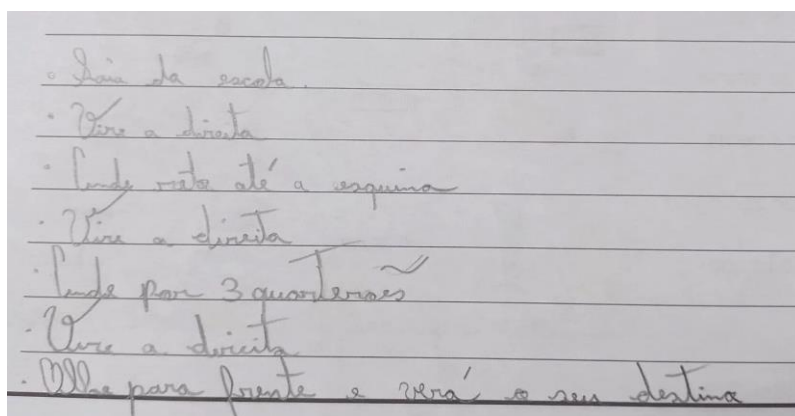 • Saia da escola.
• Vire a direita
• Ande reto até a esquina
• Vire a direita
• Ande por 3 quarterões
• Vire a direita
• Olhe para frente e verá o seu destino